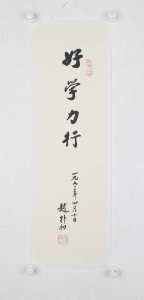 好学力行
一九八三年四月十日
趙朴初